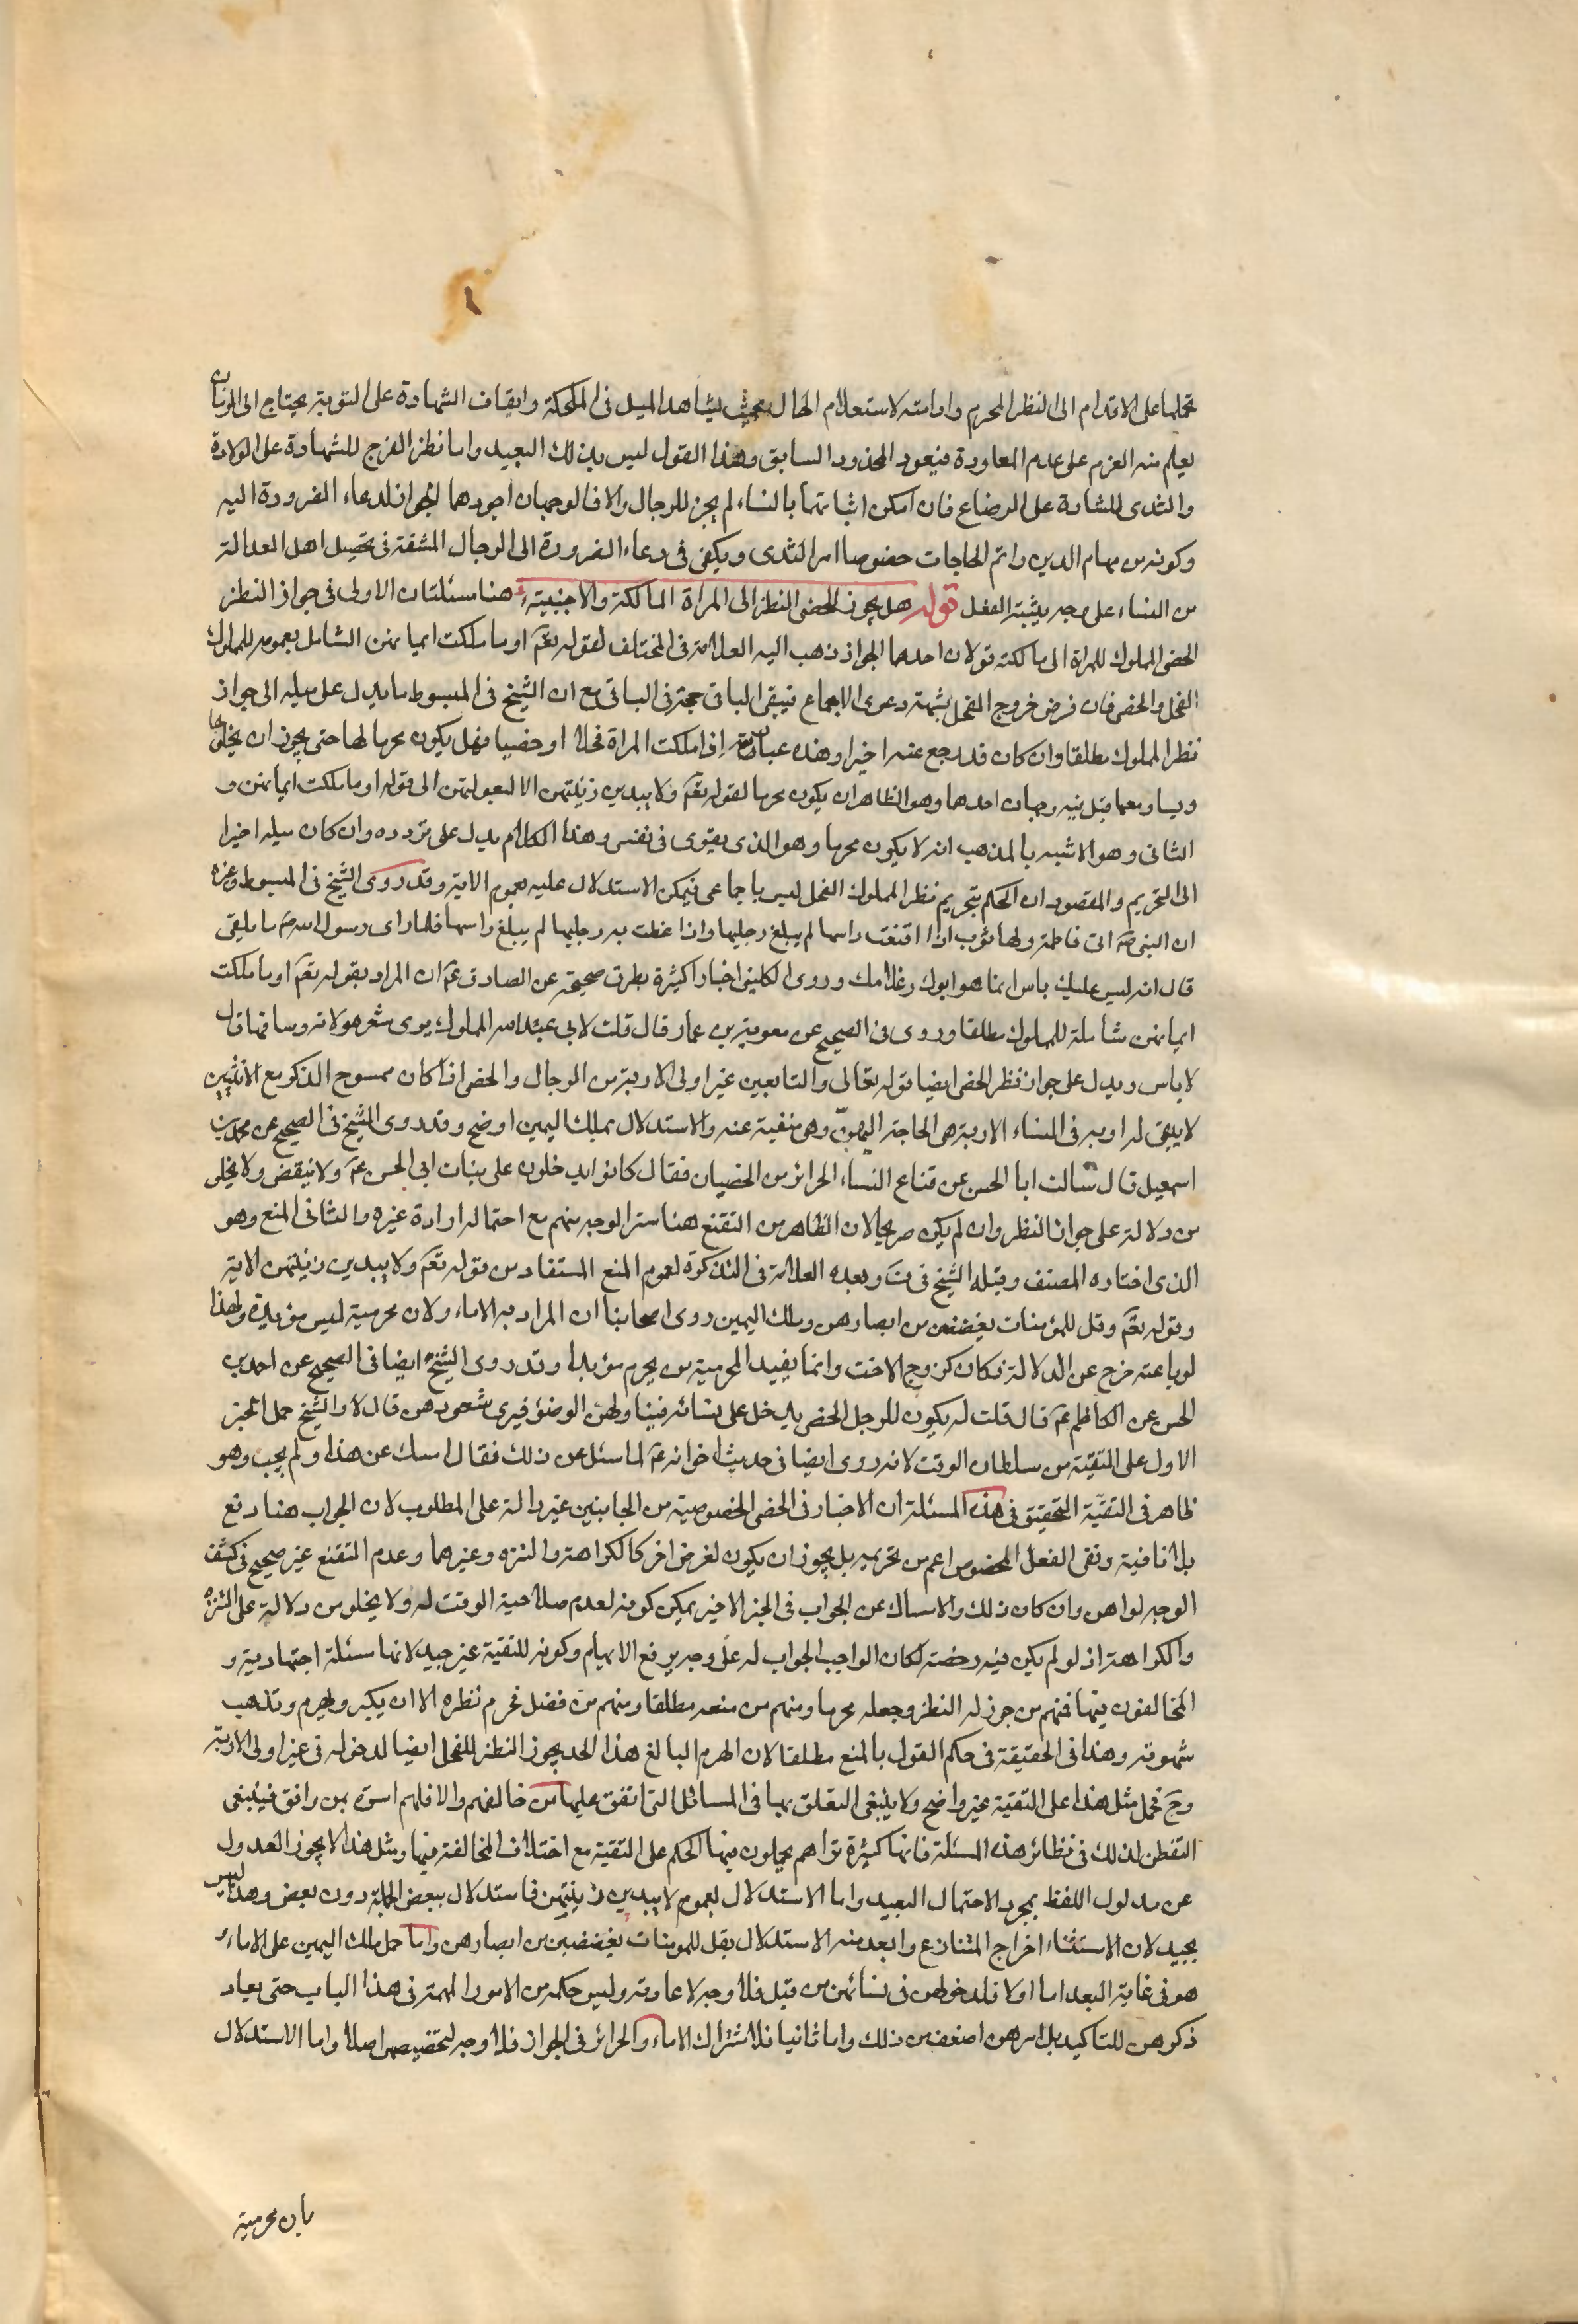 تحملها على الاقدام الى النظر المحرم واما منه لاستعلام الحال بحيث يشاهد الميل فى المكحلة وايقاف الشهادة على التوبة يحتاج الى الزمان
يعلم منه العزم على عدم المعاودة فيعود المحذور السابق وهذا القول ليس بذلك البعيد واما نظر الفرج للشهادة على الولادة
والثدى للشهادة على الرضاع فان امكن اثباتهما بالنساء لم يجز للرجال والا فالوجهان اجودهما الجواز لدعاء الضرورة اليه
وكونه من مهام الدين واتم الحاجات خصوصا امر الثدى ويكفى فى دعاء الضرورة الى الرجال المشقة فى تحصيل اهل العدالة
من النساء على وجه يثبت به الفعل قوله هل يجوز للخصى النظر الى المراة المالكة والاجنبية هنا مسئلتان الاولى فى جواز النظر
الخصى المملوك للمراة الى مالكته قولان احدهما الجواز ذهب اليه العلامة فى المختلف لقوله تعم او ما ملكت ايمانهن الشامل بعمومه للمملوك
الفحل والخصى فان فرض خروج الفحل بشبهة دعوى الاجماع فيبقى الباقى حجة فى الباقى مع ان الشيخ فى المبسوط ما يدل على ميله الى جواز
نظر المملوك مطلقا وان كان قد رجع عنه اخيرا وهذه عبارته اذا ملكت المراة فحلا او خصيا فهل يكون محرما لها حتى يجوز ان يخلو بها
ويسافر معها قيل فيه وجهان احدهما وهو الظاهر ان يكون محرما لقوله تعم ولا يبدين زينتهن الا لبعولتهن الى قوله او ما ملكت ايمانهن و
الثانى وهو الاشبه بالمذهب انه لا يكون محرما وهو الذى يقوى فى نفسى وهذا الكلام يدل على تردده وان كان ميله اخيرا
الى التحريم والمقصود ان الحكم بتحريم نظر المملوك الفحل ليس باجماعى فيمكن الاستدلال عليه بعموم الاية وقد روى الشيخ فى المبسوط وغيره
ان النبى ص اتى فاطمة ولها ثوب اذا اقنعت راسها لم يبلغ رجليها واذا غطت به رجليها لم يبلغ راسها فلما راى رسول الله ص ما يلقى
قال انه ليس عليك باس انما هو ابوك وغلامك وروى الكلينى اخبارا كثيرة بطرق صحيحة عن الصادق عم ان المراد بقوله تعم او ما ملكت
ايمانهن شاملة للمملوك مطلقا وروى فى الصحيح عن معوية بن عمار قال قلت لابى عبد الله المملوك يرى شعر مولاته وساقها قال
لا باس ويدل على جواز نظر الخصى ايضا قوله تعالى والتابعين غير اولى الاربة من الرجال والخصى اذا كان ممسوح الذكر مع الانثيين
لا يبقى له اربة فى النساء الاربة هى الحاجة اليهن وهى منفية عنه والاستدلال بملك اليمين اوضح وقد روى الشيخ فى الصحيح عن محمد بن
اسمعيل قال سالت ابا الحسن عن قناع النساء الحرائر من الخصيان فقال كانوا يدخلون على بنات ابى الحسن عم ولا يتقنعن ولا يخلى
من دلالة على جواز النظر وان لم يكن صريحا لان الظاهر من التقنع هنا ستر الوجه منهم مع احتمال ارادة غيره والثانى المنع وهو
الذى اختاره المصنف وقبله الشيخ فى ف وبعده العلامة فى التذكرة لعموم المنع المستفاد من قوله تعم ولا يبدين زينتهن الاية
وقوله تعم وقل للمؤمنات يغضضن من ابصارهن وملك اليمين روى اصحابنا ان المراد به الاماء ولان محرمية ليس مؤبدة ولهذا
لو باعته خرج عن الدلالة فكان كزوج الاخت وانما يفيد المحرمية من يحرم مؤبدا وقد روى الشيخ ايضا فى الصحيح عن احمد بن
الحسن عن الكاظم عم قال قلت له يكون للرجل الخصى يدخل على نسائه فيناولهن الوضؤ فيرى شعورهن قال لا والشيخ حمل الخبر
الاول على التقية من سلطان الوقت لانه روى ايضا فى حديث اخر انه عم لما سئل عن ذلك فقال امسك عن هذا ولم يجب وهو
ظاهر فى التقية التحقيق فى هذه المسئلة ان الاخبار فى الخصى الخصوصية من الجانبين غير دالة على المطلوب لان الجواب هنا دفع
بلا نافية ونفى الفعل المخصوص اعم من تحريمه بل يجوز ان يكون لغرض اخر كالكراهة والتنزه وغيرهما وعدم التقنع غير صحيح فى كشف
الوجه لواهن وان كان ذلك والامساك عن الجواب فى الخبر الاخير يمكن كونه لعدم صلاحية الوقت له ولا يخلو من دلالة على التنزه
والكراهة اذ لو لم يكن فيه رخصة لكان الواجب الجواب له على وجه يرفع الابهام وكونه للتقية غير جيد لانها مسئلة اجتهادية و
المخالفون فيها فمنهم من جوز له النظر وجعله محرما ومنهم من منعه مطلقا ومنهم من فصل فحرم نظره الا ان يكبر ويهرم وتذهب
شهوته وهذا فى الحقيقة فى حكم القول بالمنع مطلقا لان الهرم البالغ هذا الحد يجوز النظر للفحل ايضا لدخوله فى غير اولى الاربة
وح فحمل مثل هذا على التقية غير واضح ولا ينبغى التعلق بها فى المسائل التى اتفق عليها من خالفهم والا فلهم اسوة بمن وافق فينبغى
التفطن لذلك فى نظائر هذه المسئلة فانها كثيرة تراهم يحملون فيها الحكم على التقية مع اختلاف المخالفة فيها ومثل هذا لا يجوز العدول
عن مدلول اللفظ بمجرد الاحتمال البعيد واما الاستدلال بعموم لا يبدين زينتهن فاستدلال ببعض الجملة دون بعض وهذا ليس
بجيد لان الاستثناء اخراج المتنازع وابعد منه الاستدلال بقل للمومنات يغضضن من ابصارهن واما حمل ملك اليمين على الاماء
هو فى غاية البعد اما اولا فلدخولهن فى نسائهن من قبل فلا وجه لاعادته وليس حكمه من الامور المهمة فى هذا الباب حتى يعاد
ذكرهن للتاكيد بل امرهن اضعف من ذلك واما ثانيا فلاشتراك الاماء والحرائر فى الجواز فلا وجه لتخصيصهن اصلا واما الاستدلال
بان محرمية